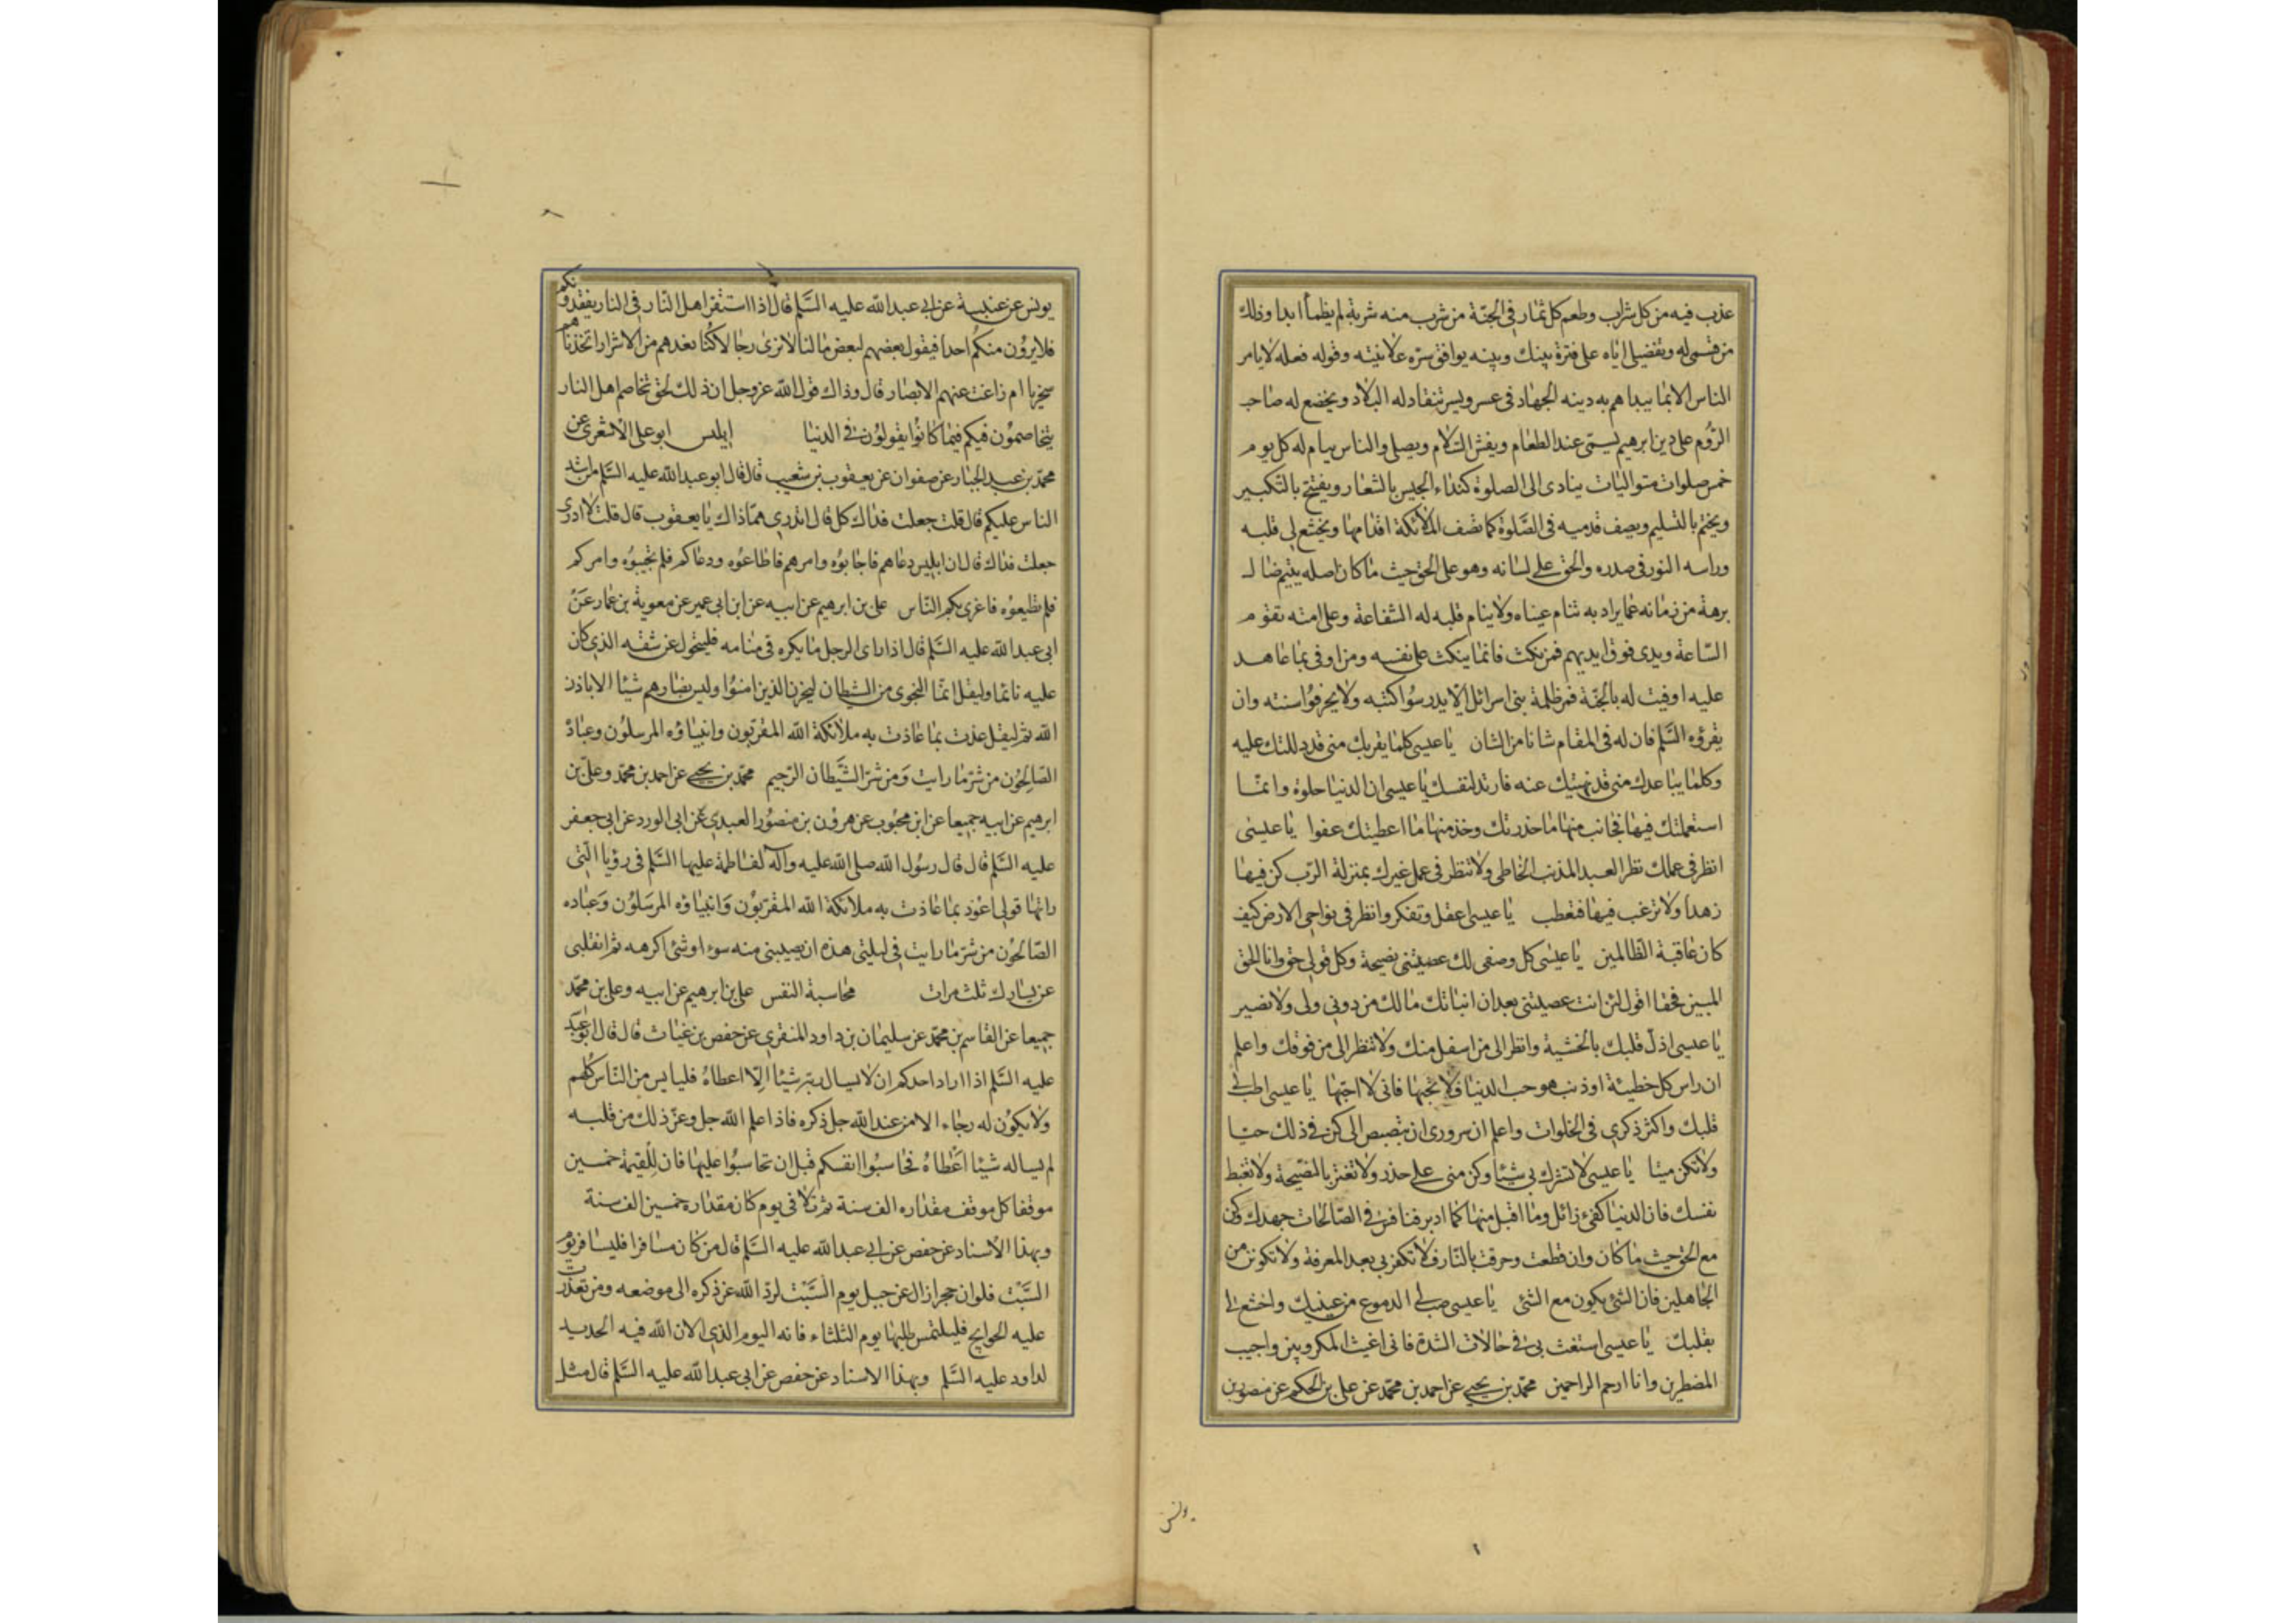 عذب فيه من كل شراب وطعم كل ثمار فى الجنة من شرب منه شربة لم يظمأ ابدا وذلك
من قسمى له وتفضيلى اياه على فترة بينك وبينه يوافق سره علانيته وقوله فعله لا يامر
الناس الا بما يبداهم به دينه الجهاد فى عسر ويسر تنقاد له البلاد ويخضع له صاحب
الروم على دين ابرهيم يسمى عند الطعام ويفشى السلام ويصلى والناس نيام له كل يوم
خمس صلوات متواليات ينادى الى الصلوة كنداء الجيش بالشعار ويفتتح بالتكبير
ويختم بالتسليم ويصف قدميه فى الصلوة كما تصف الملائكة اقدامها ويخشع لى قلبه
وراسه النور فى صدره والحق على لسانه وهو على الحق حيث ما كان اصله يتيم ضال
برهة من زمانه عما يراد به تنام عيناه ولا ينام قلبه له الشفاعة وعلى امته تقوم
الساعة ويدى فوق ايديهم فمن نكث فانما ينكث على نفسه ومن اوفى بما عاهد
عليه اوفيت له بالجنة فمر ظلمة بنى اسرائل الا يدرسوا كتبه ولا يحرفوا سنته وان
يقرؤه السلم فان له فى المقام شانا من الشان يا عيسى كلما يقربك منى قد دللتك عليه
وكلما يباعدك منى قد نهيتك عنه فارتد لنفسك يا عيسى ان الدنيا حلوة وانما
استعملتك فيها فجانب منها ما حذرتك وخذ منها ما اعطيتك عفوا يا عيسى
انظر فى عملك نظر العبد المذنب الخاطى ولا تنظر فى عمل غيرك بمنزلة الرب كن فيها
زهدا ولا ترغب فيها فتعطب يا عيسى اعقل وتفكر وانظر فى نواحى الارض كيف
كان عاقبة الظالمين يا عيسى كل وصفى لك نصيحة وكل قولى حق وانا الحق
المبين فحقا اقول لئن انت عصيتنى بعد ان انباتك مالك من دونى ولى ولا نصير
يا عيسى اذل قلبك بالخشية وانظر الى من اسفل منك ولا تنظر الى من فوقك واعلم
ان راس كل خطيئة او ذنب هو حب الدنيا فلا تحبها فانى لا احبها يا عيسى اطب لى
قلبك واكثر ذكرى فى الخلوات واعلم ان سرورى ان تبصبص الى كن فى ذلك حيا
ولا تكن ميتا يا عيسى لا تشرك بى شيئا وكن منى على حذر ولا تغتر بالنصيحة ولا تغبط
نفسك فان الدنيا كفىء زائل وما اقبل منها كما ادبر فنافس فى الصالحات جهدك وكن
مع الحق حيث ما كان وان قطعت وحرقت بالنار فلا تكفر بى بعد المعرفة ولا تكونن من
الجاهلين فان الشئ يكون مع الشئ يا عيسى صب لى الدموع من عينيك واخشع لى
بقلبك يا عيسى استغث بى فى حالات الشدة فانى اغيث المكروبين واجيب
المضطرين وانا ارحم الراحمين محمد بن يحيى عن احمد بن محمد عن على بن الحكم عن منصور بن
يونس
يونس عن عنبسة عن ابى عبد الله عليه السلم قال اذا استقر اهل النار فى النار يفقدونكم
فلا يرون منكم احدا فيقول بعضهم لبعض ما لنا لا نرى رجالا كنا نعدهم من الاشرار اتخذناهم
سخريا ام زاغت عنهم الابصار قال وذلك قول الله عز وجل ان ذلك لحق تخاصم اهل النار
يتخاصمون فيكم فيما كانوا يقولون فى الدنيا ابليس ابو على الاشعرى عن
محمد بن عبد الجبار عن صفوان عن يعقوب بن شعيب قال قال ابو عبد الله عليه السلم من اشد
الناس عليكم قال قلت جعلت فداك كل قال اتدرى مما ذاك يا يعقوب قال قلت لا ادرى
جعلت فداك قال ان ابليس دعاهم فاجابوه وامرهم فاطاعوه ودعاكم فلم تجيبوه وامركم
فلم تطيعوه فاغرى بكم الناس على بن ابرهيم عن ابيه عن ابن ابى عمير عن معوية بن عمار عن
ابى عبد الله عليه السلم قال اذا راى الرجل ما يكره فى منامه فليتحول عن شقه الذى كان
عليه نائما وليقل انما النجوى من الشيطان ليحزن الذين امنوا وليس بضارهم شيئا الا باذن
الله ثم ليقل عذت بما عاذت به ملائكة الله المقربون وانبياؤه المرسلون وعباده
الصالحون من شر ما رايت ومن شر الشيطان الرجيم محمد بن يحيى عن احمد بن محمد وعلى بن
ابرهيم عن ابيه جميعا عن ابن محبوب عن هرون بن منصور العبدى عن ابى الورد عن ابى جعفر
عليه السلم قال قال رسول الله صلى الله عليه وآله لفاطمة عليها السلم فى رؤيا التى
راتها قولى اعوذ بما عاذت به ملائكة الله المقربون وانبياؤه المرسلون وعباده
الصالحون من شر ما رايت فى ليلتى هذه ان يصيبنى منه سوء او شئ اكرهه ثم انقلبى
عن يسارك ثلث مرات محاسبة النفس على بن ابرهيم عن ابيه وعلى بن محمد
جميعا عن القاسم بن محمد عن سليمان بن داود المنقرى عن حفص بن غياث قال قال ابو عبد
عليه السلم اذا اراد احدكم ان لا يسال ربه شيئا الا اعطاه فليايس من الناس كلهم
ولا يكون له رجاء الا من عند الله جل ذكره فاذا علم الله جل وعز ذلك من قلبه
لم يساله شيئا اعطاه فحاسبوا انفسكم قبل ان تحاسبوا عليها فان للقيمة خمسين
موقفا كل موقف مقداره الف سنة ثم تلا فى يوم كان مقداره خمسين الف سنة
وبهذا الاسناد عن حفص عن ابى عبد الله عليه السلم قال من كان مسافرا فليسافر يوم
السبت فلو ان حجرا زال عن جبل يوم السبت لرده الله عز ذكره الى موضعه ومن تعذرت
عليه الحوايج فليلتمس طلبها يوم الثلثاء فانه اليوم الذى الان الله فيه الحديد
لداود عليه السلم وبهذا الاسناد عن حفص عن ابى عبد الله عليه السلم قال مثل